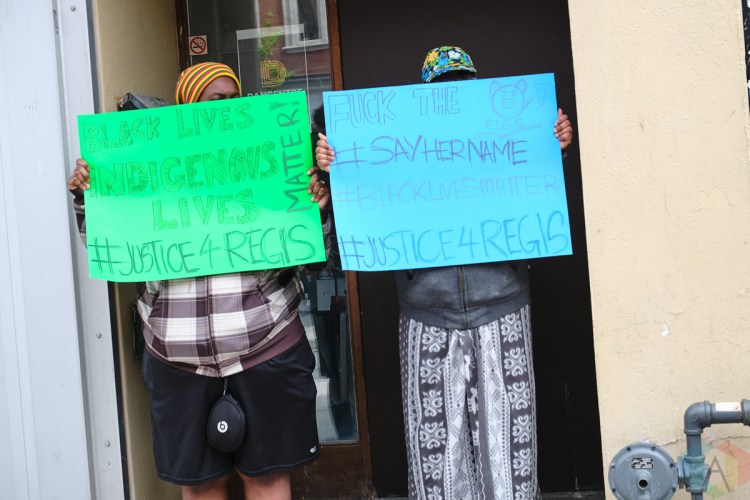 BLACK LIVES
INDIGENOUS
LIVES
MATTER!
#JUSTICE4REGIS
FUCK THE !
PIGS
#SAYHERNAME
#BLACKLIVESMATTER
#JUSTICE4REGIS